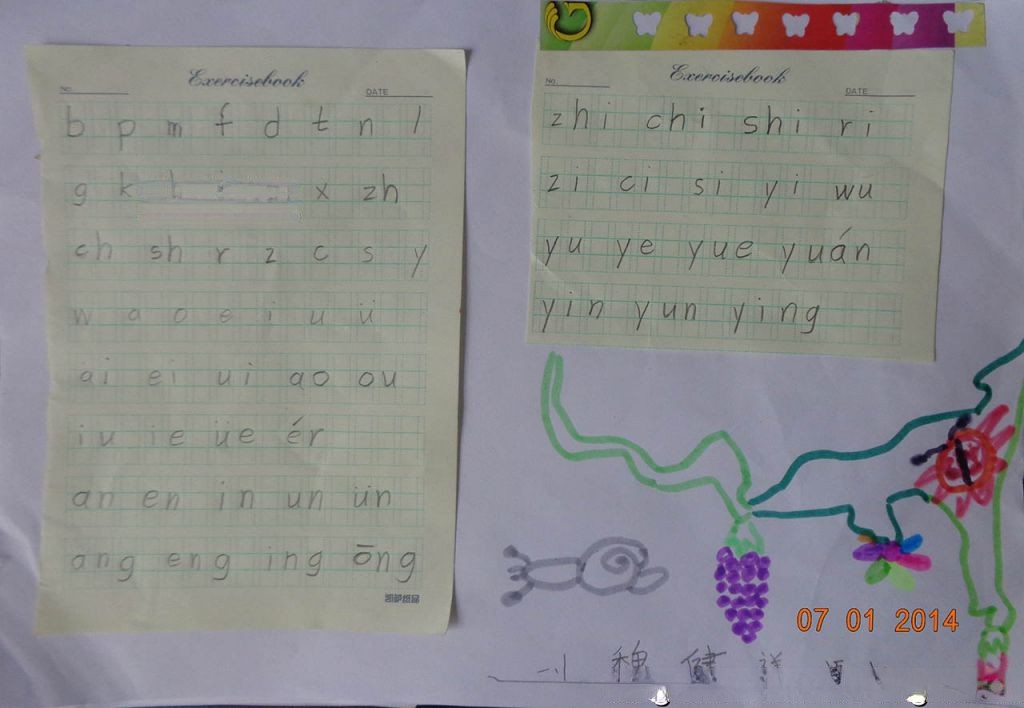 Exercisebook
No. DATE
b p m f d t n l
g k x zh
ch sh r z c s y
w a o e i u ü
ai ei ui ao ou
iu ie üe ér
an en in un ün
ang eng ing ōng
凯萨纸品
Exercisebook
No. DATE
zhi chi shi ri
zi ci si yi wu
yu ye yue yuán
yin yun ying
07 01 2014